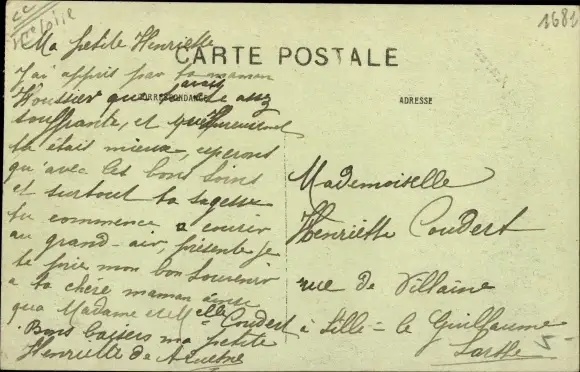 1681
Ma petite Henriette
CARTE POSTALE
J'ai appris par ta maman
Houssier que tu avais été assez
CORRESPONDANCE
ADRESSE
souffrante, et qu'heureusement
tu était mieux, esperons
qu'avec les bons soins
et surtout ta sagesse
tu commence a courir
au grand-air, présente je
te prie mon bon souvenir
a ta chère maman ainsi
qua Madame et Melle Coudert
Bons baisers ma petite
Henriette de
Mademoiselle
Henriette Coudert
rue de Villaine
à Sillé-le Guillaume
Sarthe